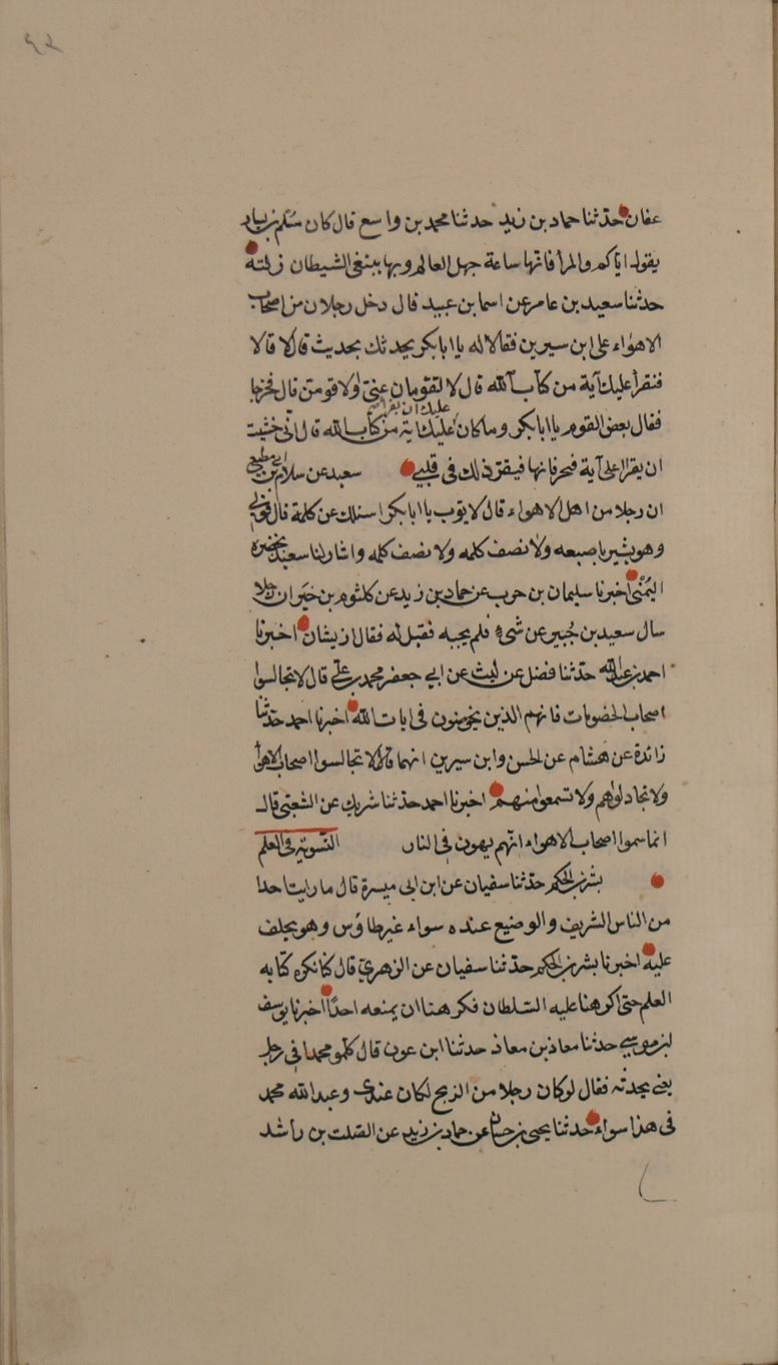 ٩٢
عفان حدثنا حماد بن زيد حدثنا محمد بن واسع قال كان مسلم بن يسار
يقول اياكم والمرأ فانها ساعة جهل العالم وبها يبتغي الشيطان زلته
حدثنا سعيد بن عامر عن اسما بن عبيد قال دخل رجلان من اصحاب
الاهواء على ابن سيرين فقالا له يا ابا بكر يحدثك بحديث قال لا قالا
فنقرأ عليك آية من كتاب الله قال لا لتقومان عني ولا قومن قال فخرجا
فقال بعض القوم يا ابا بكر وما كان عليك ان يقرا عليك اية من كتاب الله قال اني خشيت
ان يقرا على آية فيحرفانها فيقر ذلك في قلبي سعيد عن سلام بن ابي مطيع
ان رجلا من اهل الاهواء قال لايوب يا ابا بكر اسئلك عن كلمة قال فولى
وهو يشير باصبعه ولا نصف كلمه ولا نصف كلمه واشار لنا سعيد بخنصره
اليمنى اخبرنا سليمان بن حرب عن حماد بن زيد عن كلثوم بن جبر ان رجلا
سال سعيد بن جبير عن شيء فلم يجبه فقيل له فقال ازيشان اخبرنا
احمد بن عبد الله حدثنا فضل عن ليث عن ابي جعفر محمد بن علي قال لا تجالسوا
اصحاب الخصومات فانهم الذين يخوضون في ايات الله اخبرنا احمد حدثنا
زائدة عن هشام عن الحسن وابن سيرين انهما قالا لا تجالسوا اصحاب الاهوا
ولا تجادلوهم ولا تسمعوا منهم اخبرنا احمد حدثنا شريك عن الشعبي قال
انما سموا اصحاب الاهواء انهم يهون في النار التسوية في العلم
بشر بن الحكم حدثنا سفيان عن ابن ابي ميسرة قال ما رايت احدا
من الناس الشريف والوضيع عنده سواء غير طاؤس وهو يحلف
عليه اخبرنا بشر بن الحكم حدثنا سفيان عن الزهري قال كنا نكره كتابه
العلم حتى اكرهنا عليه السلطان فكرهنا ان يمنعه احدا اخبرنا يوسف
بن موسى حدثنا معاذ بن معاذ حدثنا ابن عون قال كلموا محمدا في رجل
يعني يحدثه فقال لو كان رجلا من الزنج لكان عندي وعبد الله محمد
في هذا سواء حدثنا يحيى بن حسان عن حماد بن زيد عن الصلت بن راشد